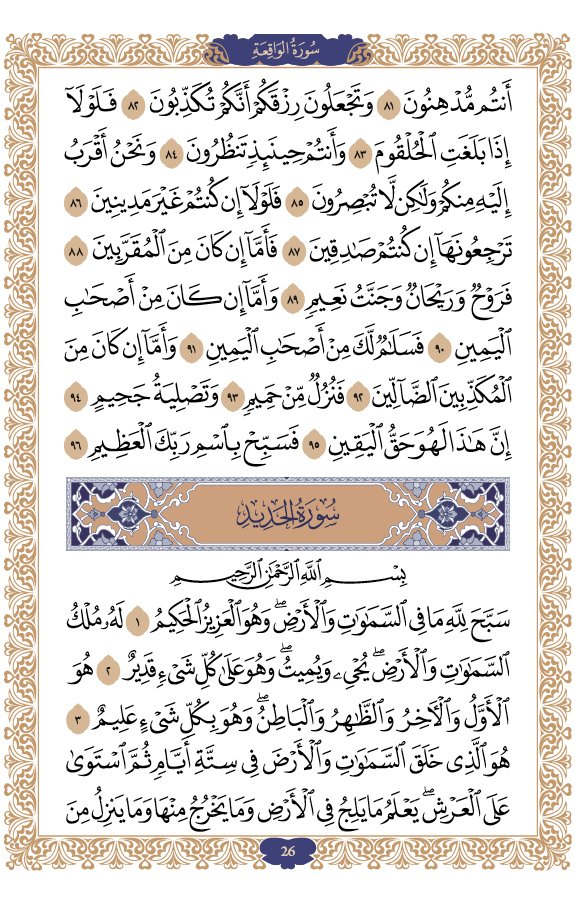 سُورَةُ الْوَاقِعَةِ
أَنتُم مُّدْهِنُونَ ٨١ وَتَجْعَلُونَ رِزْقَكُمْ أَنَّكُمْ تُكَذِّبُونَ ٨٢ فَلَوْلَآ
إِذَا بَلَغَتِ الْحُلْقُومَ ٨٣ وَأَنتُمْ حِينَئِذٍ تَنظُرُونَ ٨٤ وَنَحْنُ أَقْرَبُ
إِلَيْهِ مِنكُمْ وَلَٰكِن لَّا تُبْصِرُونَ ٨٥ فَلَوْلَآ إِن كُنتُمْ غَيْرَ مَدِينِينَ ٨٦
تَرْجِعُونَهَآ إِن كُنتُمْ صَٰدِقِينَ ٨٧ فَأَمَّآ إِن كَانَ مِنَ الْمُقَرَّبِينَ ٨٨
فَرَوْحٌ وَرَيْحَانٌ وَجَنَّتُ نَعِيمٍ ٨٩ وَأَمَّآ إِن كَانَ مِنْ أَصْحَٰبِ
الْيَمِينِ ٩٠ فَسَلَٰمٌ لَّكَ مِنْ أَصْحَٰبِ الْيَمِينِ ٩١ وَأَمَّآ إِن كَانَ مِنَ
الْمُكَذِّبِينَ الضَّآلِّينَ ٩٢ فَنُزُلٌ مِّنْ حَمِيمٍ ٩٣ وَتَصْلِيَةُ جَحِيمٍ ٩٤
إِنَّ هَٰذَا لَهُوَ حَقُّ الْيَقِينِ ٩٥ فَسَبِّحْ بِاسْمِ رَبِّكَ الْعَظِيمِ ٩٦
سُورَةُ الْحَدِيدِ
بِسْمِ اللَّهِ الرَّحْمَٰنِ الرَّحِيمِ
سَبَّحَ لِلَّهِ مَا فِي السَّمَٰوَٰتِ وَالْأَرْضِ ۖ وَهُوَ الْعَزِيزُ الْحَكِيمُ ١ لَهُۥ مُلْكُ
السَّمَٰوَٰتِ وَالْأَرْضِ ۖ يُحْيِۦ وَيُمِيتُ ۖ وَهُوَ عَلَىٰ كُلِّ شَيْءٍ قَدِيرٌ ٢ هُوَ
الْأَوَّلُ وَالْآخِرُ وَالظَّٰهِرُ وَالْبَاطِنُ ۖ وَهُوَ بِكُلِّ شَيْءٍ عَلِيمٌ ٣
هُوَ الَّذِي خَلَقَ السَّمَٰوَٰتِ وَالْأَرْضَ فِي سِتَّةِ أَيَّامٍ ثُمَّ اسْتَوَىٰ
عَلَى الْعَرْشِ ۖ يَعْلَمُ مَا يَلِجُ فِي الْأَرْضِ وَمَا يَخْرُجُ مِنْهَا وَمَا يَنزِلُ مِنَ
26